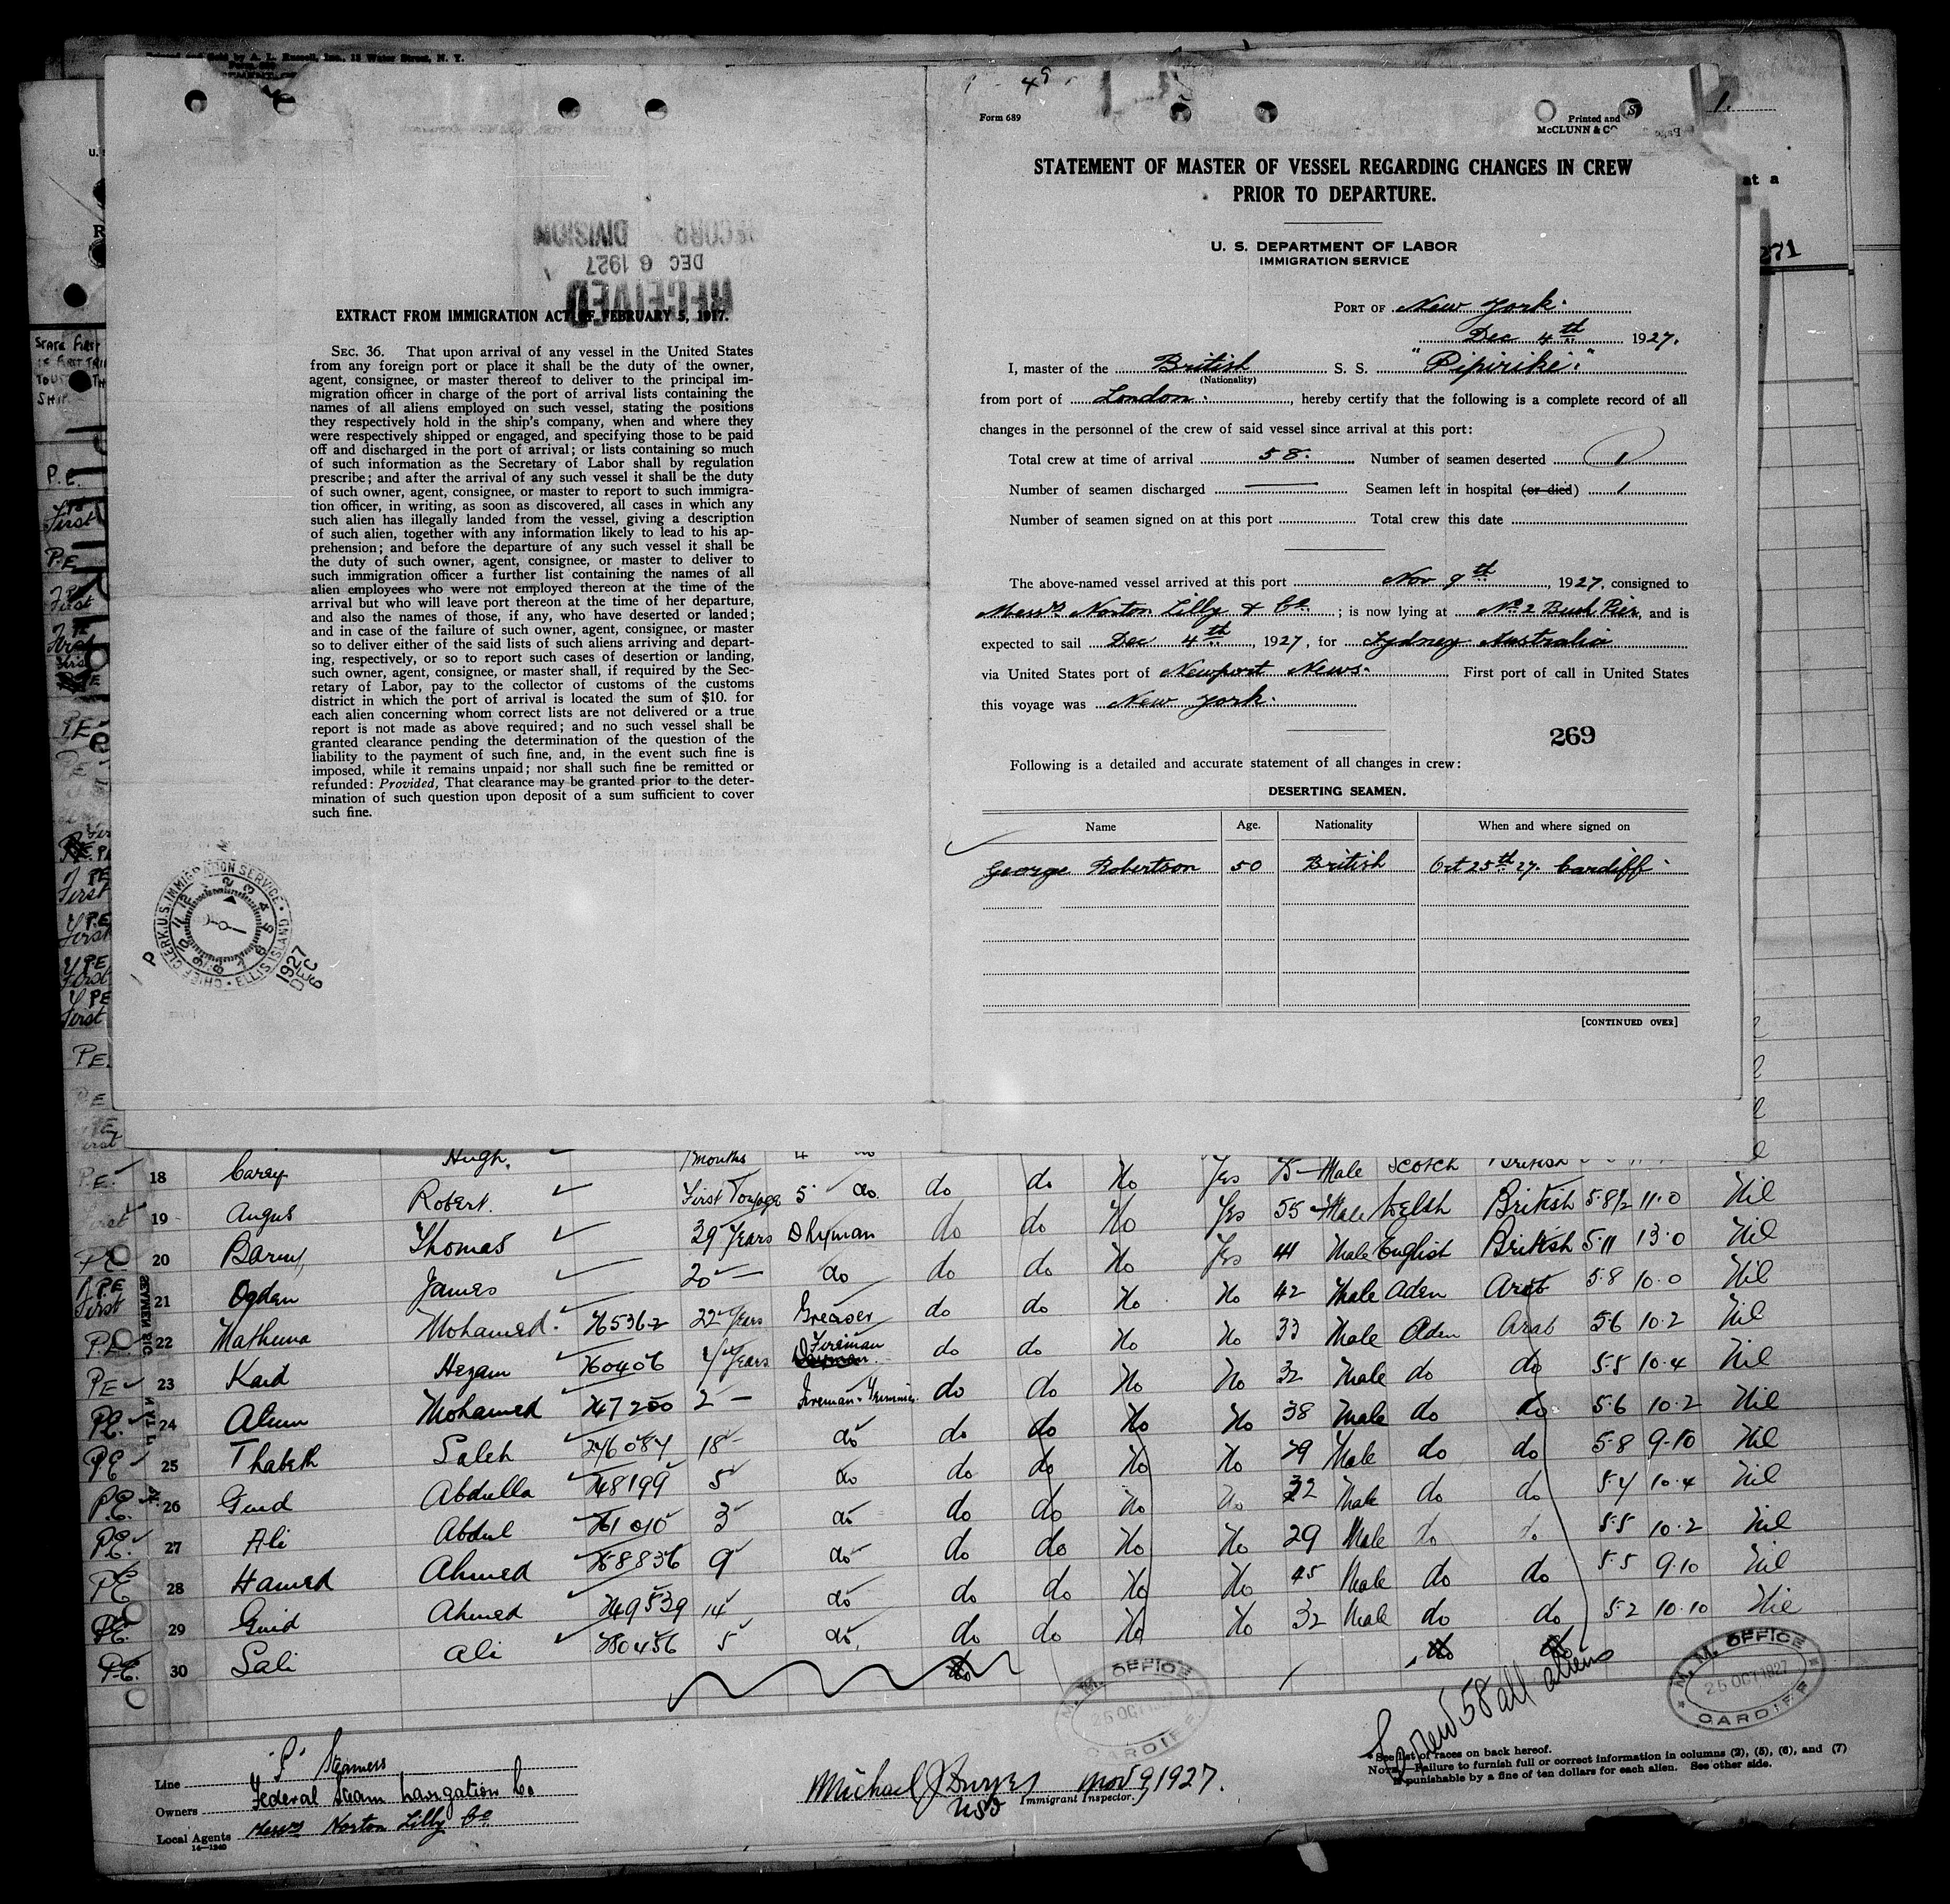 Printed and Sold by A. L. Russell, Inc., 15 Water Street, N. Y.
RECORD DIVISION
DEC 6 1927
RECEIVED
EXTRACT FROM IMMIGRATION ACT OF FEBRUARY 5, 1917.
SEC. 36. That upon arrival of any vessel in the United States
from any foreign port or place it shall be the duty of the owner,
agent, consignee, or master thereof to deliver to the principal im-
migration officer in charge of the port of arrival lists containing the
names of all aliens employed on such vessel, stating the positions
they respectively hold in the ship's company, when and where they
were respectively shipped or engaged, and specifying those to be paid
off and discharged in the port of arrival; or lists containing so much
of such information as the Secretary of Labor shall by regulation
prescribe; and after the arrival of any such vessel it shall be the duty
of such owner, agent, consignee, or master to report to such immigra-
tion officer, in writing, as soon as discovered, all cases in which any
such alien has illegally landed from the vessel, giving a description
of such alien, together with any information likely to lead to his ap-
prehension; and before the departure of any such vessel it shall be
the duty of such owner, agent, consignee, or master to deliver to
such immigration officer a further list containing the names of all
alien employees who were not employed thereon at the time of the
arrival but who will leave port thereon at the time of her departure,
and also the names of those, if any, who have deserted or landed;
and in case of the failure of such owner, agent, consignee, or master
so to deliver either of the said lists of such aliens arriving and depart-
ing, respectively, or so to report such cases of desertion or landing,
such owner, agent, consignee, or master shall, if required by the Sec-
retary of Labor, pay to the collector of customs of the customs
district in which the port of arrival is located the sum of $10. for
each alien concerning whom correct lists are not delivered or a true
report is not made as above required; and no such vessel shall be
granted clearance pending the determination of the question of the
liability to the payment of such fine, and, in the event such fine is
imposed, while it remains unpaid; nor shall such fine be remitted or
refunded: Provided, That clearance may be granted prior to the deter-
mination of such question upon deposit of a sum sufficient to cover
such fine.
CHIEF CLERK, U.S. IMMIGRATION SERVICE • ELLIS ISLAND
1927 DEC 6 P
Form 689
Printed and
McCLUNN & CO
1.
STATEMENT OF MASTER OF VESSEL REGARDING CHANGES IN CREW
PRIOR TO DEPARTURE.
U. S. DEPARTMENT OF LABOR
IMMIGRATION SERVICE
at a
271
PORT OF New York.
Dec 4th 1927.
I, master of the British S. S. "Pipiriki."
(Nationality)
from port of London., hereby certify that the following is a complete record of all
changes in the personnel of the crew of said vessel since arrival at this port:
Total crew at time of arrival 58. Number of seamen deserted 1
Number of seamen discharged — Seamen left in hospital (or died) 1
Number of seamen signed on at this port Total crew this date
The above-named vessel arrived at this port Nov 9th, 1927, consigned to
Messrs Norton Lilly & Co; is now lying at No 2 Bush Pier, and is
expected to sail Dec 4th, 1927, for Sydney Australia
via United States port of Newport News. First port of call in United States
this voyage was New York.
269
Following is a detailed and accurate statement of all changes in crew:
DESERTING SEAMEN.
Name Age. Nationality When and where signed on
George Robertson 50 British Oct 25th 27. Cardiff
[CONTINUED OVER]
P.E. 18 Carey Hugh. 7 months 4 do
First 19 Angus Robert. First Voyage 5 do. do do No Yes 25 Male Scotch British
P.E. 20 Barry Thomas 39 Years Dkyman do do No Yes 55 Male Welsh British 5·8½ 11·0 Nil
P.E. First 21 Ogden James 20 — do do do No Yes 41 Male English British 5·11 13·0 Nil
P.E. 22 Mathana Mohamed. 765362 22 Years Greaser do do No No 42 Male Aden Arab 5·8 10·0 Nil
P.E 23 Kaid Hezam 760406 4 Years Fireman do do No No 33 Male Aden Arab 5·6 10·2 Nil
P.E. 24 Atum Mohamed 747200 2 — Fireman·Trimmer do do No No 32 Male do do 5·5 10·4 Nil
P.E 25 Thabeth Saleh 246084 18 — do do do No No 38 Male do do 5·6 10·2 Nil
P.E. 26 Guid Abdulla 748199 5 do do do No No 29 Male do do 5·8 9·10 Nil
P.E. 27 Ali Abdul 761010 3 do do do No No 32 Male do do 5·4 10·4 Nil
P.E 28 Hamed Ahmed 758836 9 do do do No No 29 Male do do 5·5 10·2 Nil
P.E. 29 Guid Ahmed 749539 14 do do do No No 45 Male do do 5·5 9·10 Nil
P.E. 30 Sali Ali 780456 5 do do do No No 32 Male do do 5·2 10·10 Nil
M. M. OFFICE
25 OCT 1927
CARDIFF
M. M. OFFICE
25 OCT 1927
CARDIFF
Crew 58 all aliens
Line "P" Steamers
Owners Federal Steam Navigation Co
Local Agents Messrs Norton Lilly Co
14—1240
Nov 9 1927.
Immigrant Inspector.
*See list of races on back hereof.
NOTE.—Failure to furnish full or correct information in columns (2), (5), (6), and (7)
is punishable by a fine of ten dollars for each alien. See other side.